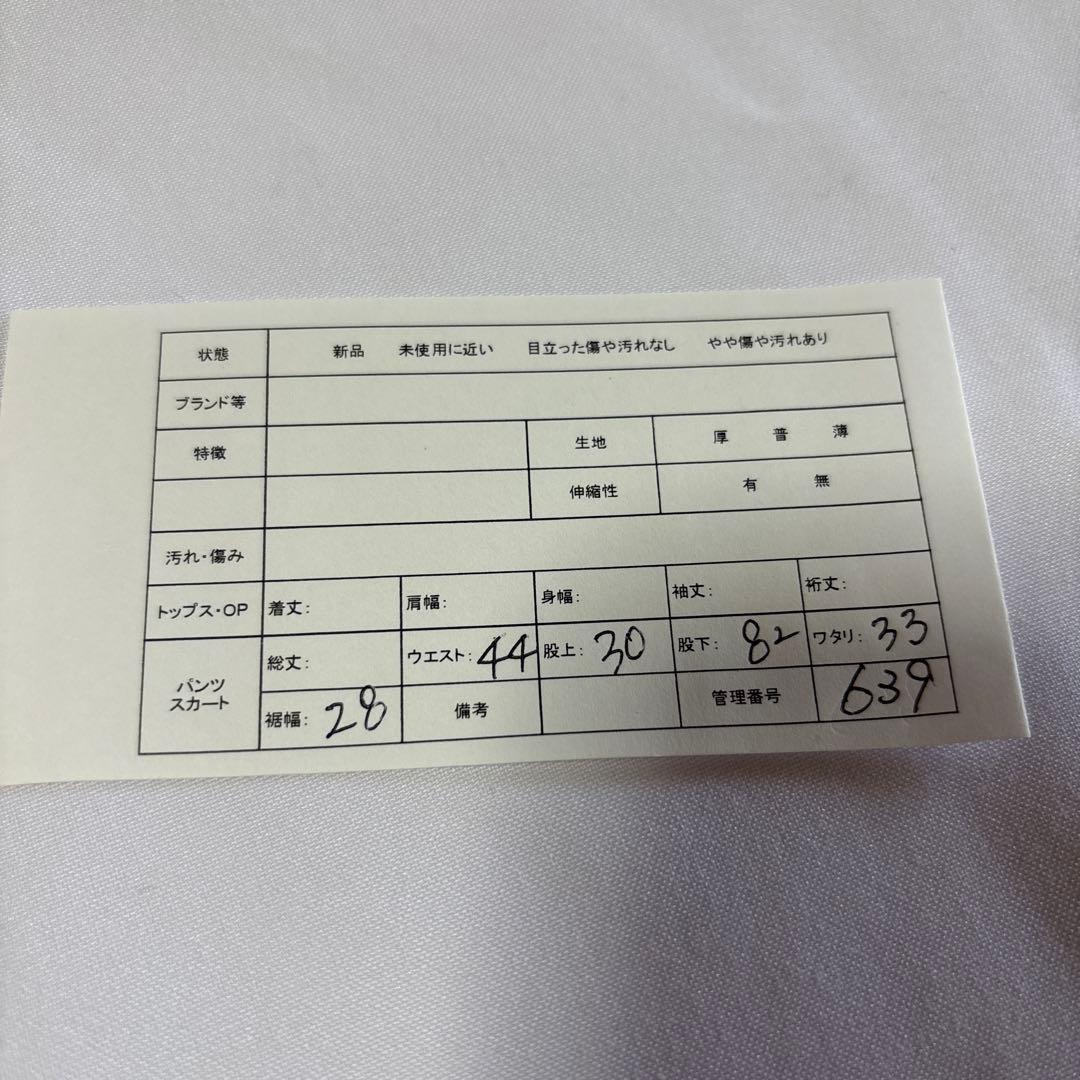 状態 新品 未使用に近い 目立った傷や汚れなし やや傷や汚れあり
ブランド等
特徴 生地 厚 普 薄
伸縮性 有 無
汚れ・傷み
トップス・OP 着丈: 肩幅: 身幅: 袖丈: 裄丈:
パンツ
スカート
総丈: ウエスト: 44 股上: 30 股下: 82 ワタリ: 33
裾幅: 28 備考 管理番号 639